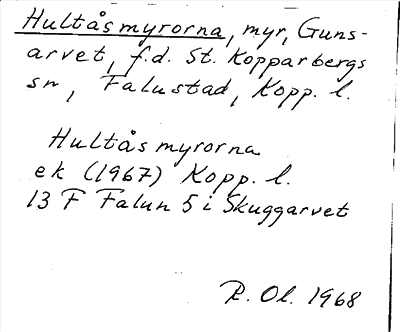 Hultåsmyrorna, myr, Guns-
arvet, f.d. St. Kopparbergs
sn, Falustad, Kopp. l.
Hultåsmyrorna
ek (1967) Kopp. l.
13 F Falun 5 i Skuggarvet
R. Ol. 1968